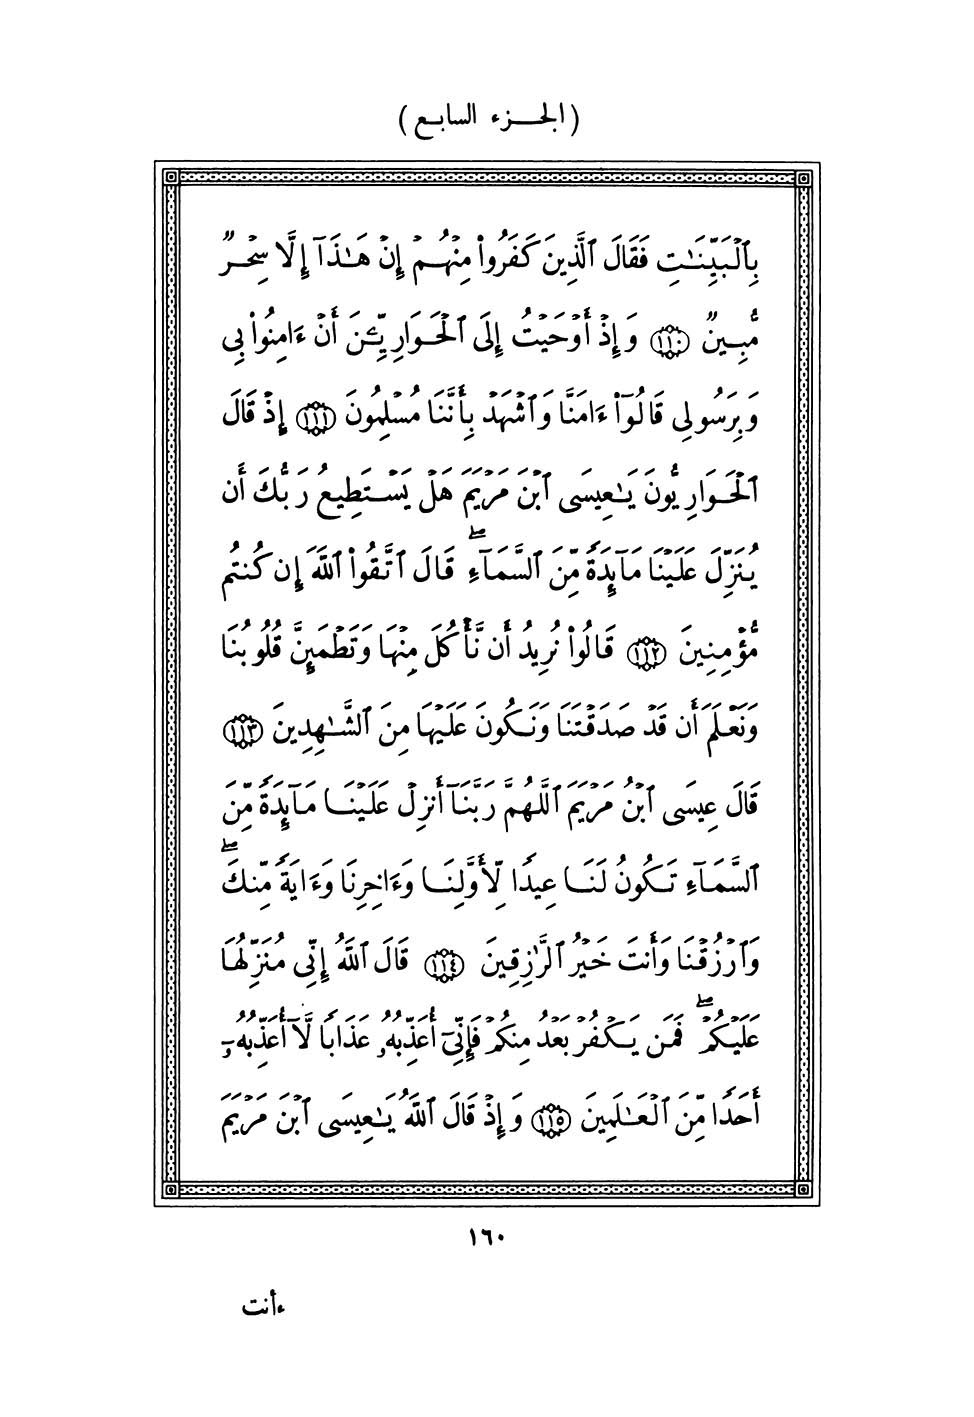 (الجزء السابع)
بِٱلْبَيِّنَـٰتِ فَقَالَ ٱلَّذِينَ كَفَرُوا۟ مِنْهُمْ إِنْ هَـٰذَآ إِلَّا سِحْرٌ
مُّبِينٌ ١١٠ وَإِذْ أَوْحَيْتُ إِلَى ٱلْحَوَارِيِّـۧنَ أَنْ ءَامِنُوا۟ بِى
وَبِرَسُولِى قَالُوٓا۟ ءَامَنَّا وَٱشْهَدْ بِأَنَّنَا مُسْلِمُونَ ١١١ إِذْ قَالَ
ٱلْحَوَارِيُّونَ يَـٰعِيسَى ٱبْنَ مَرْيَمَ هَلْ يَسْتَطِيعُ رَبُّكَ أَن
يُنَزِّلَ عَلَيْنَا مَآئِدَةً مِّنَ ٱلسَّمَآءِ ۖ قَالَ ٱتَّقُوا۟ ٱللَّهَ إِن كُنتُم
مُّؤْمِنِينَ ١١٢ قَالُوا۟ نُرِيدُ أَن نَّأْكُلَ مِنْهَا وَتَطْمَئِنَّ قُلُوبُنَا
وَنَعْلَمَ أَن قَدْ صَدَقْتَنَا وَنَكُونَ عَلَيْهَا مِنَ ٱلشَّـٰهِدِينَ ١١٣
قَالَ عِيسَى ٱبْنُ مَرْيَمَ ٱللَّهُمَّ رَبَّنَآ أَنزِلْ عَلَيْنَا مَآئِدَةً مِّنَ
ٱلسَّمَآءِ تَكُونُ لَنَا عِيدًا لِّأَوَّلِنَا وَءَاخِرِنَا وَءَايَةً مِّنكَ ۖ
وَٱرْزُقْنَا وَأَنتَ خَيْرُ ٱلرَّٰزِقِينَ ١١٤ قَالَ ٱللَّهُ إِنِّى مُنَزِّلُهَا
عَلَيْكُمْ ۖ فَمَن يَكْفُرْ بَعْدُ مِنكُمْ فَإِنِّىٓ أُعَذِّبُهُۥ عَذَابًا لَّآ أُعَذِّبُهُۥٓ
أَحَدًا مِّنَ ٱلْعَـٰلَمِينَ ١١٥ وَإِذْ قَالَ ٱللَّهُ يَـٰعِيسَى ٱبْنَ مَرْيَمَ
١٦٠
ءأنت